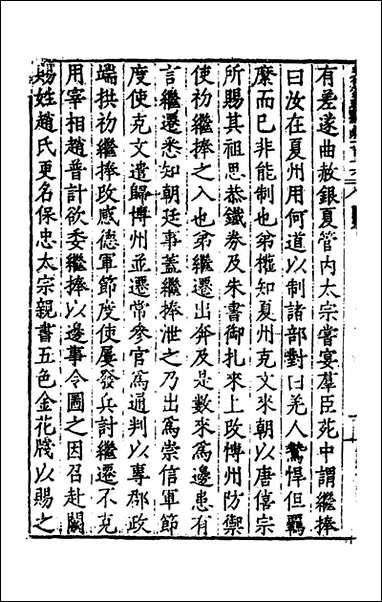 有差遂曲赦銀夏管内太宗嘗宴羣臣苑中謂繼捧
曰汝在夏州用何道以制諸部對曰羌人驁悍但羈
縻而已非能制也弟權知夏州克文來朝以唐僖宗
所賜其祖思恭鐵券及朱書御扎來上攺博州防禦
使初繼捧之入也弟繼遷出奔及是數來爲邊患有
言繼遷悉知朝廷事蓋繼捧泄之乃出爲崇信軍節
度使克文遣歸博州並選常參官爲通判以專郡政
端拱初繼捧攺感德軍節度使屢發兵討繼遷不克
用宰相趙普計欲委繼捧以邊事令圖之因召赴闕
賜姓趙氏更名保忠太宗親書五色金花牋以賜之